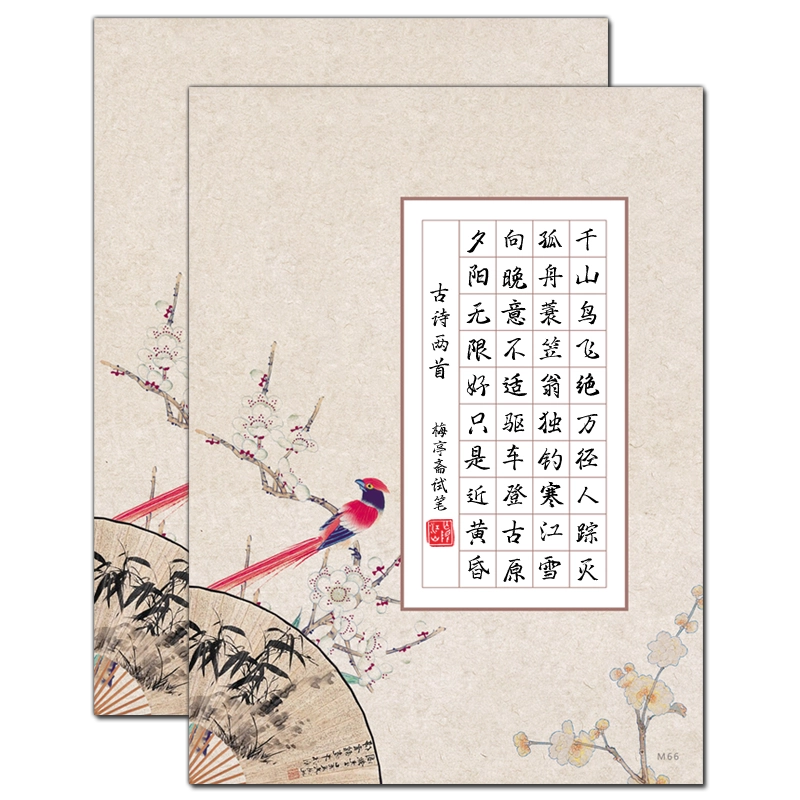 千山鸟飞绝万径人踪灭
孤舟蓑笠翁独钓寒江雪
向晚意不适驱车登古原
夕阳无限好只是近黄昏
古诗两首
梅亭斋试笔
M66